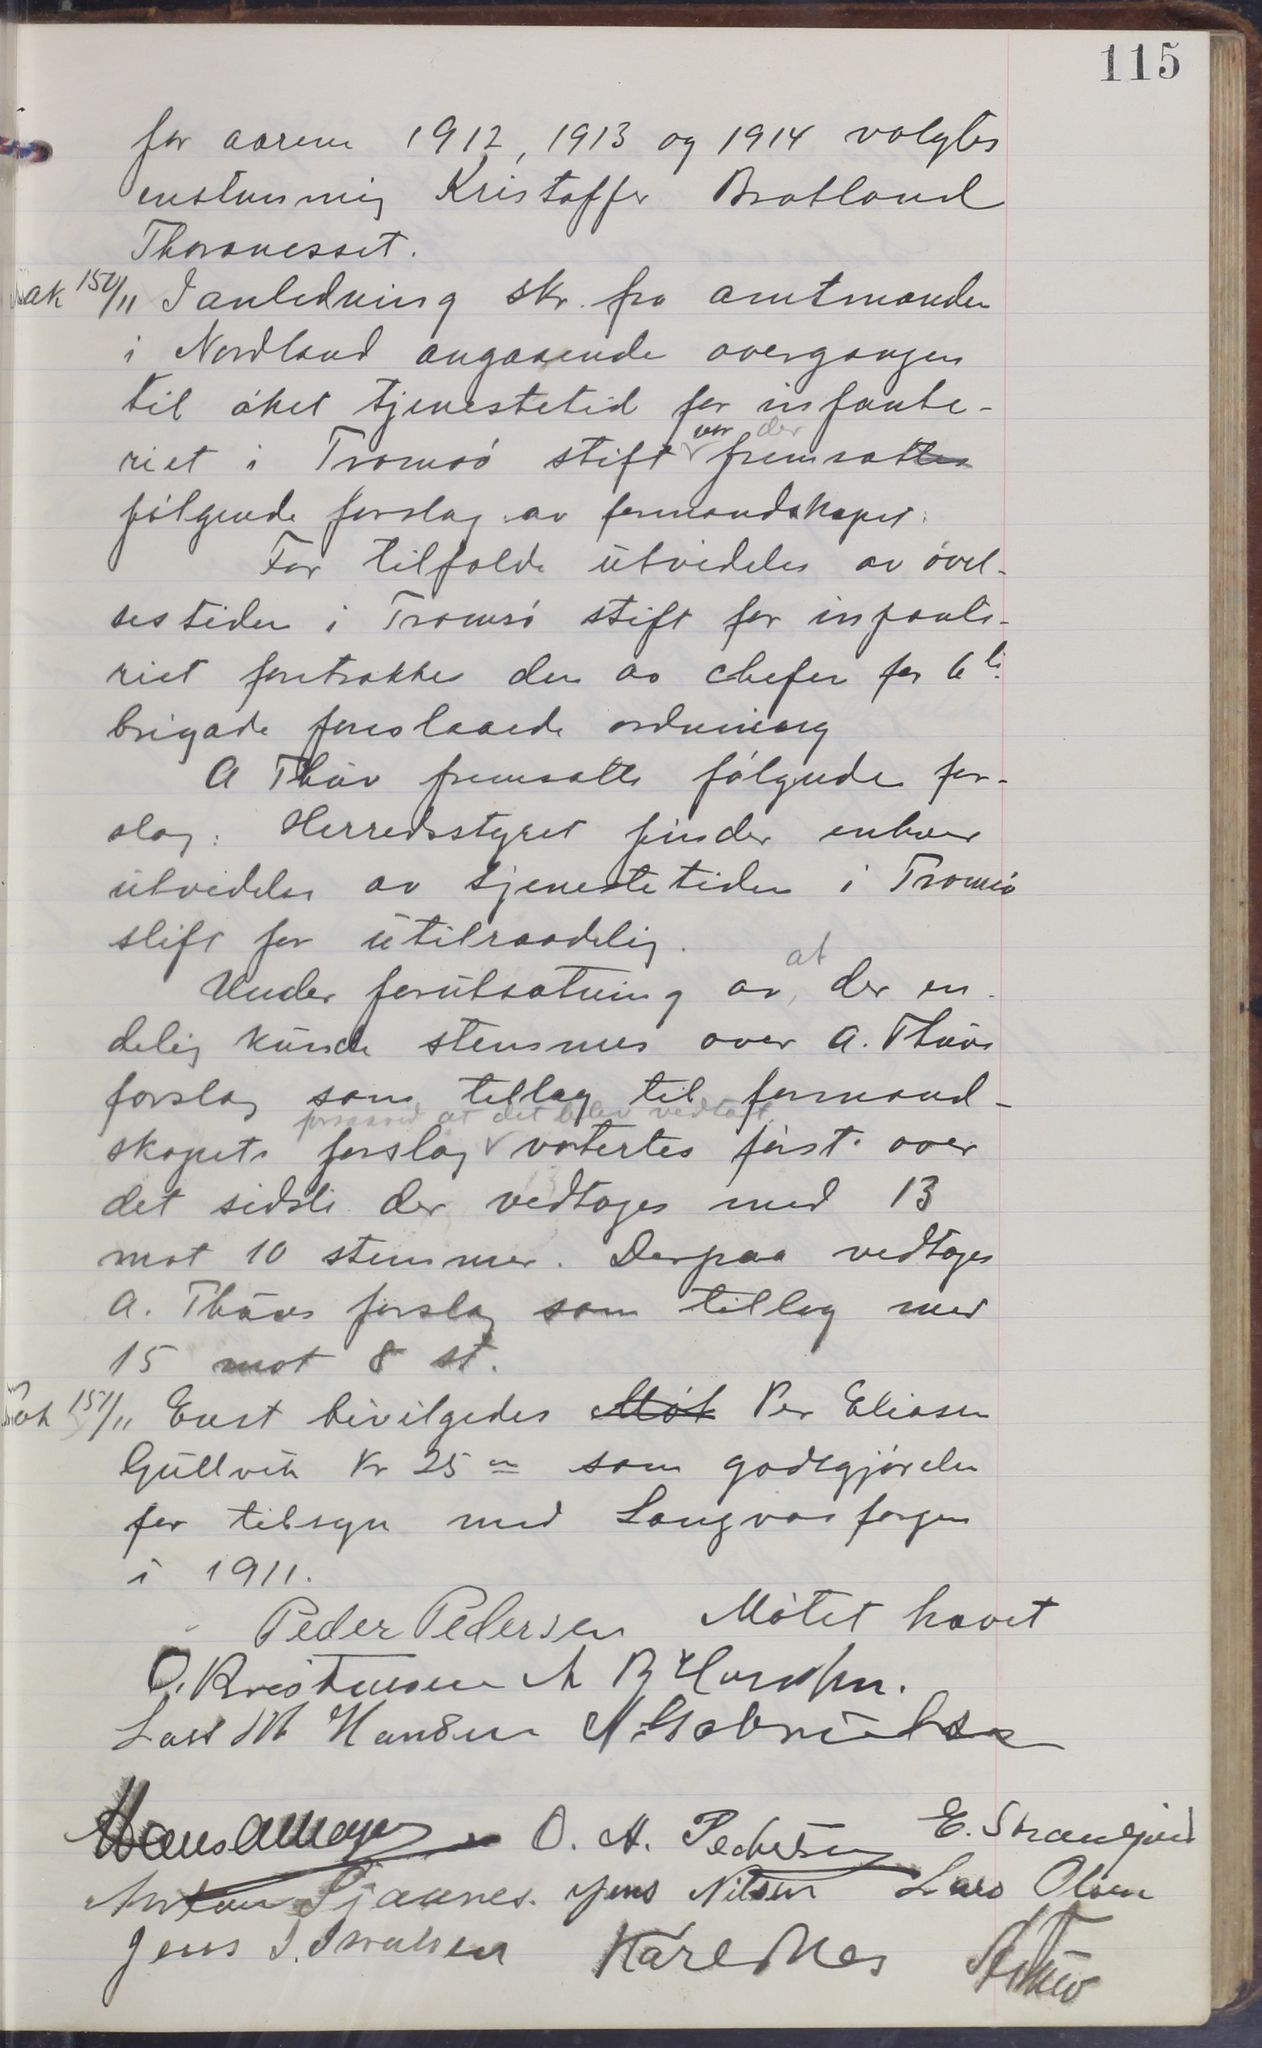 115
for aarene 1912, 1913 og 1914 valgtes
enstemmig Kristoffer Bratland
Thoranesset.
Sak 150/11 I anledning skr. fra amtmanden
i Nordland angaaende overgangen
til øket tjenestetid for infante-
riet i Tromsø stift var der fremsattes
følgende forslag av formandskapet:
For tilfælde utvidelse av øvel-
sestiden i Tromsø stift for infante-
riet foretrækkes den av chefen for 6te
brigade foreslaaede ordning
A Thuv fremsatte følgende for-
slag: Herredsstyret finder enhver
utvidelse av tjenestetiden i Tromsø
stift for utilraadelig.
Under forutsætning av, at der en-
delig kunde stemmes over A. Thuvs
forslag som tillæg til formand-
skapets forslag forsaavid at det blev vedtatt votertes først over
det sidste der vedtoges med 13
mot 10 stemmer. Derpaa vedtoges
A. Thuvs forslag som tillæg med
15 mot 8 st.
Sak 151/11 Enst bevilgedes Møt Per Eliasen
Gullvik Kr 25 som godtgjørelse
for tilsyn med Langvas fergen
i 1911.
Møtet hævet
Peder Pedersen
O. Kristensen A B Hansen.
Lars M Hansen N. Gabrielsen
Hans A Meyer O. A. Pedersen E. Strandjord
Anton Sjaanes. Jens Nilsen Lars Olsen
Jens I. Israelsen Kåre Nes A Thuv